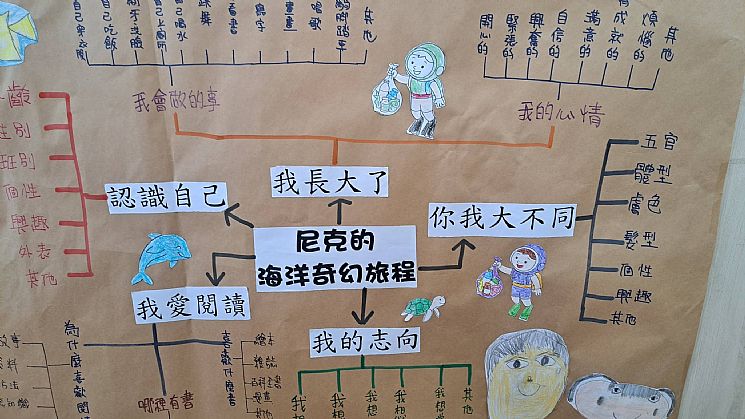 自己吃飯
自己上廁所
自己喝水
跳舞
看書
寫字
畫畫
唱歌
其他
開心的
緊張的
興奮的
自信的
滿意的
有成就的
煩惱的
其他
我會做的事
我的心情
年齡
性別
班別
個性
興趣
外表
其他
認識自己
我長大了
你我大不同
五官
體型
膚色
髮型
個性
興趣
其他
尼克的
海洋奇幻旅程
我愛閱讀
我的志向
為什麼喜歡閱
哪裡有書
喜歡什麼書
繪本
雜誌
百科全書
其他
我想
我想
我想
我想
我想
其他